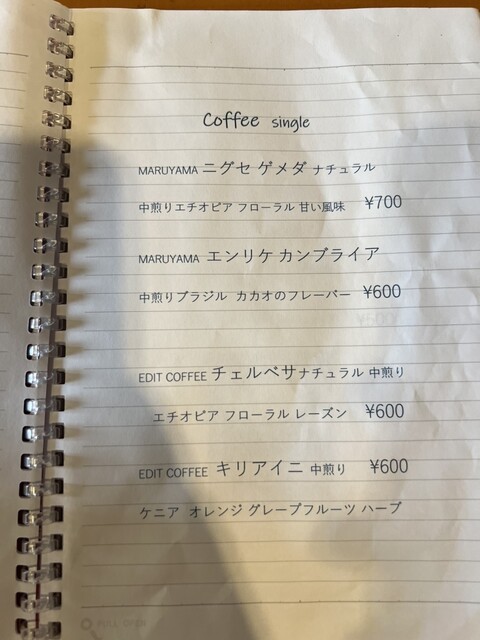 Coffee single
MARUYAMA ニグセ ゲメダ ナチュラル
中煎りエチオピア フローラル 甘い風味 ¥700
MARUYAMA エンリケ カンブライア
中煎りブラジル カカオのフレーバー ¥600
EDIT COFFEE チェルベサナチュラル 中煎り
エチオピア フローラル レーズン ¥600
EDIT COFFEE キリアイニ 中煎り ¥600
ケニア オレンジ グレープフルーツ ハーブ
PULL OPEN